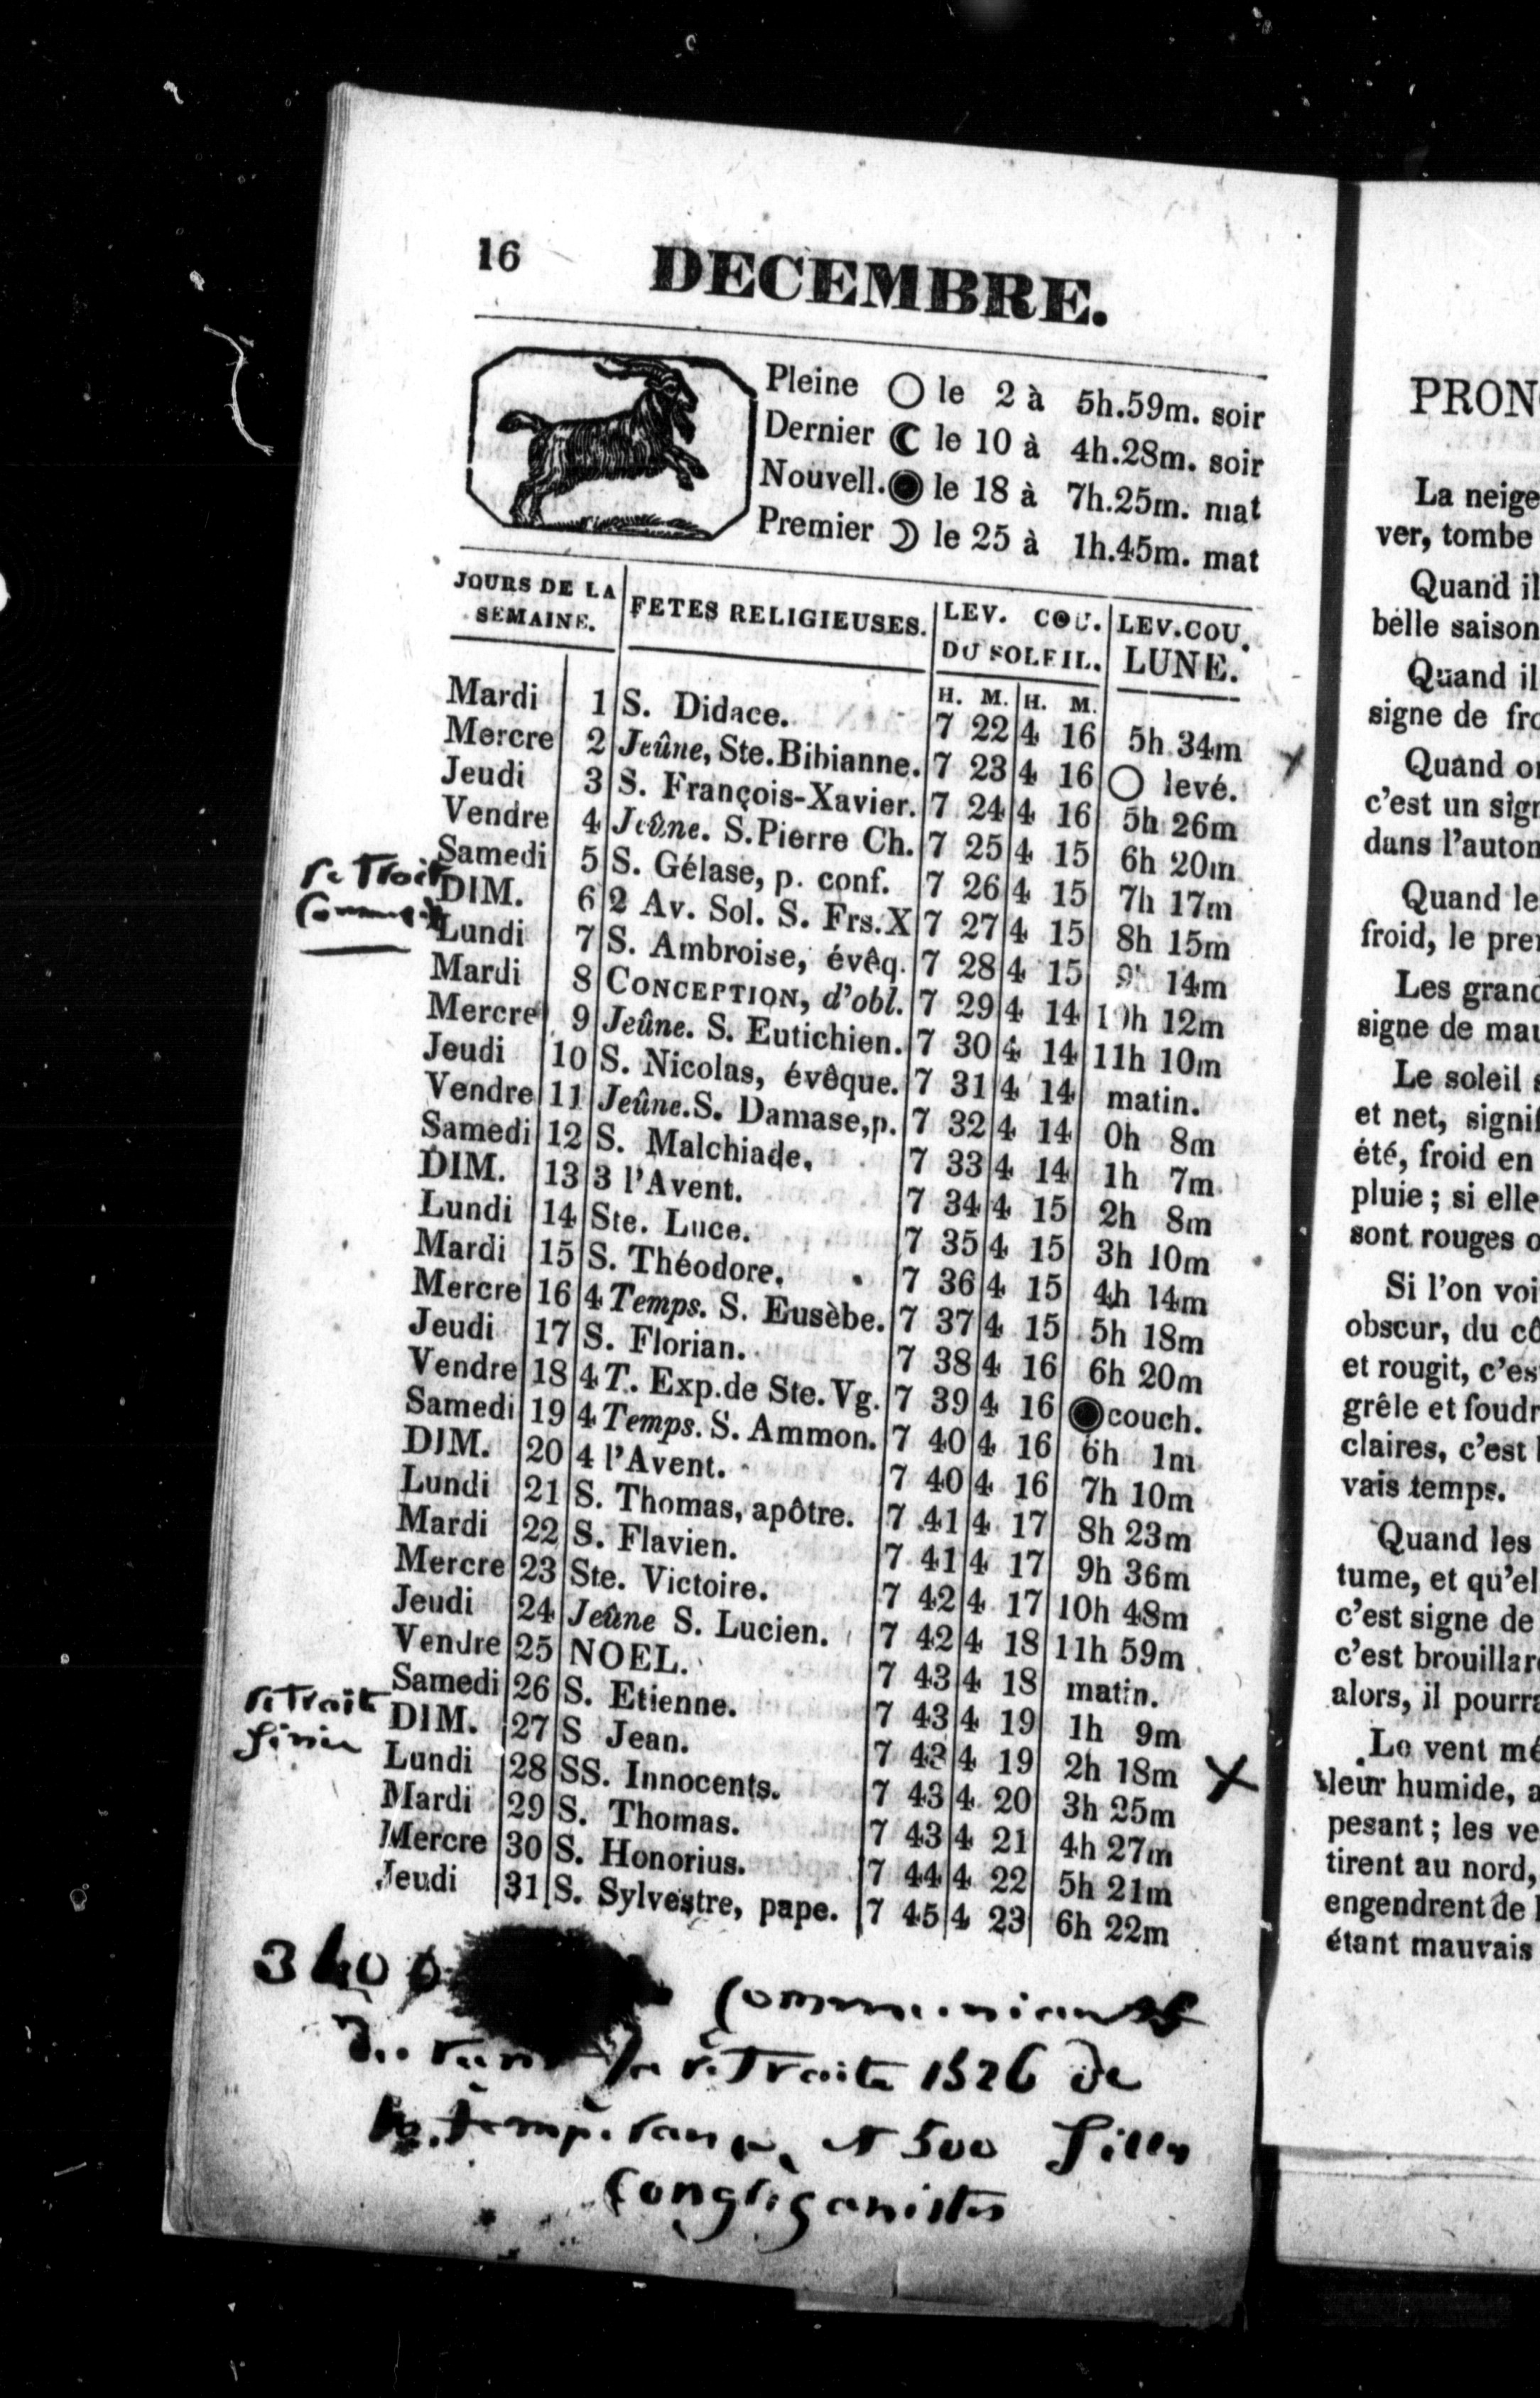 16 DECEMBRE.
Pleine le 2 à 5h.59m. soir
Dernier le 10 à 4h.28m. soir
Nouvell. le 18 à 7h.25m. mat
Premier le 25 à 1h.45m. mat
JOURS DE LA SEMAINE. FETES RELIGIEUSES. LEV. COU. DU SOLEIL. LEV.COU. LUNE.
H. M. H. M.
Mardi 1 S. Didace. 7 22 4 16 5h 34m
Mercre 2 Jeûne, Ste.Bibianne. 7 23 4 16 levé.
Jeudi 3 S. François-Xavier. 7 24 4 16 5h 26m
Vendre 4 Jeûne. S.Pierre Ch. 7 25 4 15 6h 20m
Samedi 5 S. Gélase, p. conf. 7 26 4 15 7h 17m
DIM. 6 2 Av. Sol. S. Frs.X 7 27 4 15 8h 15m
Lundi 7 S. Ambroise, évêq. 7 28 4 15 9h 14m
Mardi 8 CONCEPTION, d'obl. 7 29 4 14 10h 12m
Mercre 9 Jeûne. S. Eutichien. 7 30 4 14 11h 10m
Jeudi 10 S. Nicolas, évêque. 7 31 4 14 matin.
Vendre 11 Jeûne.S. Damase,p. 7 32 4 14 0h 8m
Samedi 12 S. Malchiade. 7 33 4 14 1h 7m
DIM. 13 3 l'Avent. 7 34 4 15 2h 8m
Lundi 14 Ste. Luce. 7 35 4 15 3h 10m
Mardi 15 S. Théodore. 7 36 4 15 4h 14m
Mercre 16 4 Temps. S. Eusèbe. 7 37 4 15 5h 18m
Jeudi 17 S. Florian. 7 38 4 16 6h 20m
Vendre 18 4 T. Exp.de Ste.Vg. 7 39 4 16 couch.
Samedi 19 4 Temps. S. Ammon. 7 40 4 16 6h 1m
DIM. 20 4 l'Avent. 7 40 4 16 7h 10m
Lundi 21 S. Thomas, apôtre. 7 41 4 17 8h 23m
Mardi 22 S. Flavien. 7 41 4 17 9h 36m
Mercre 23 Ste. Victoire. 7 42 4 17 10h 48m
Jeudi 24 Jeûne S. Lucien. 7 42 4 18 11h 59m
Vendre 25 NOEL. 7 43 4 18 matin.
Samedi 26 S. Etienne. 7 43 4 19 1h 9m
DIM. 27 S Jean. 7 43 4 19 2h 18m
Lundi 28 SS. Innocents. 7 43 4 20 3h 25m
Mardi 29 S. Thomas. 7 43 4 21 4h 27m
Mercre 30 S. Honorius. 7 44 4 22 5h 21m
Jeudi 31 S. Sylvestre, pape. 7 45 4 23 6h 22m
retrait
retrait
finie
communiants
retraite 1826 de
et 500 filles
congréganistes
PRON
La neige
ver, tombe
Quand il
belle saison
Quand il
signe de fro
Quand o
c'est un sign
dans l'auton
Quand le
froid, le pre
Les grand
signe de mau
Le soleil s
et net, signif
été, froid en
pluie ; si elle
sont rouges o
Si l'on voi
obscur, du cô
et rougit, c'es
grêle et foudr
claires, c'est
vais temps.
Quand les
tume, et qu'el
c'est signe de
c'est brouillar
alors, il pourra
Le vent mé
leur humide, a
pesant ; les ve
tirent au nord,
engendrent de
étant mauvais